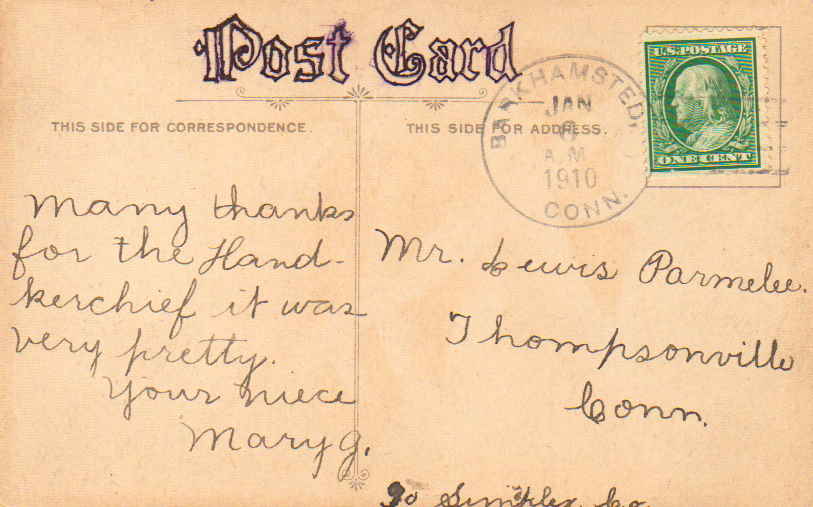 Post Card
THIS SIDE FOR CORRESPONDENCE.
THIS SIDE FOR ADDRESS.
BARKHAMSTED,
JAN
6
A.M
1910
CONN.
U.S. POSTAGE
ONE CENT
Many thanks
for the Hand-
kerchief it was
very pretty.
Your niece
Mary G.
Mr. Lewis Parmelee.
Thompsonville
Conn.
Co.